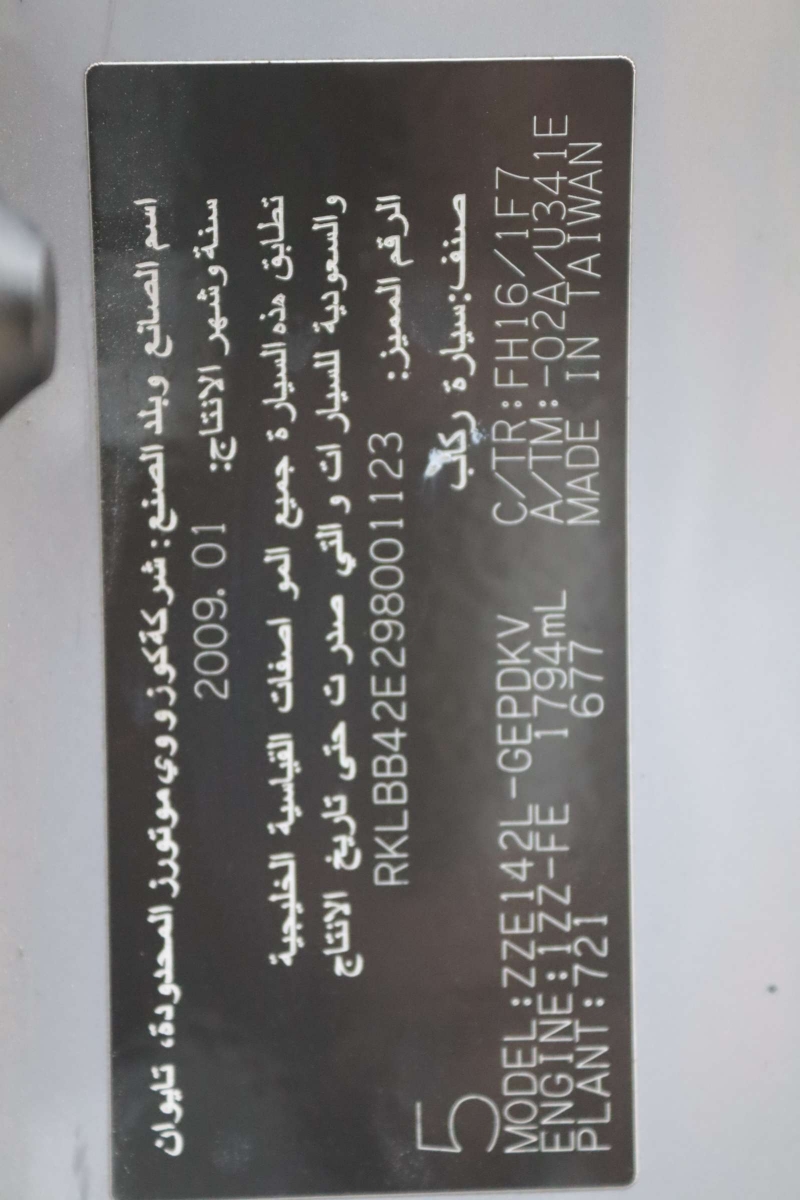 اسم الصانع وبلد الصنع: شركة كوزووي موتورز المحدودة، تايوان
سنة وشهر الانتاج: 2009. 01
تطابق هذه السيارة جميع المواصفات القياسية الخليجية
والسعودية للسيارات والتي صدرت حتى تاريخ الانتاج
الرقم المميز: RKLBB42E298001123
صنف: سيارة ركاب
5
MODEL:ZZE142L-GEPDKV C/TR:FH16/1F7
ENGINE:1ZZ-FE 1794mL A/TM:-02A/U341E
PLANT:721 677 MADE IN TAIWAN